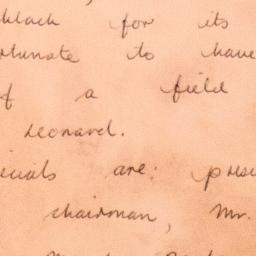 black for its
rtunate to have
f a field
Leonard.
icials are: pres
chairman, Mr.